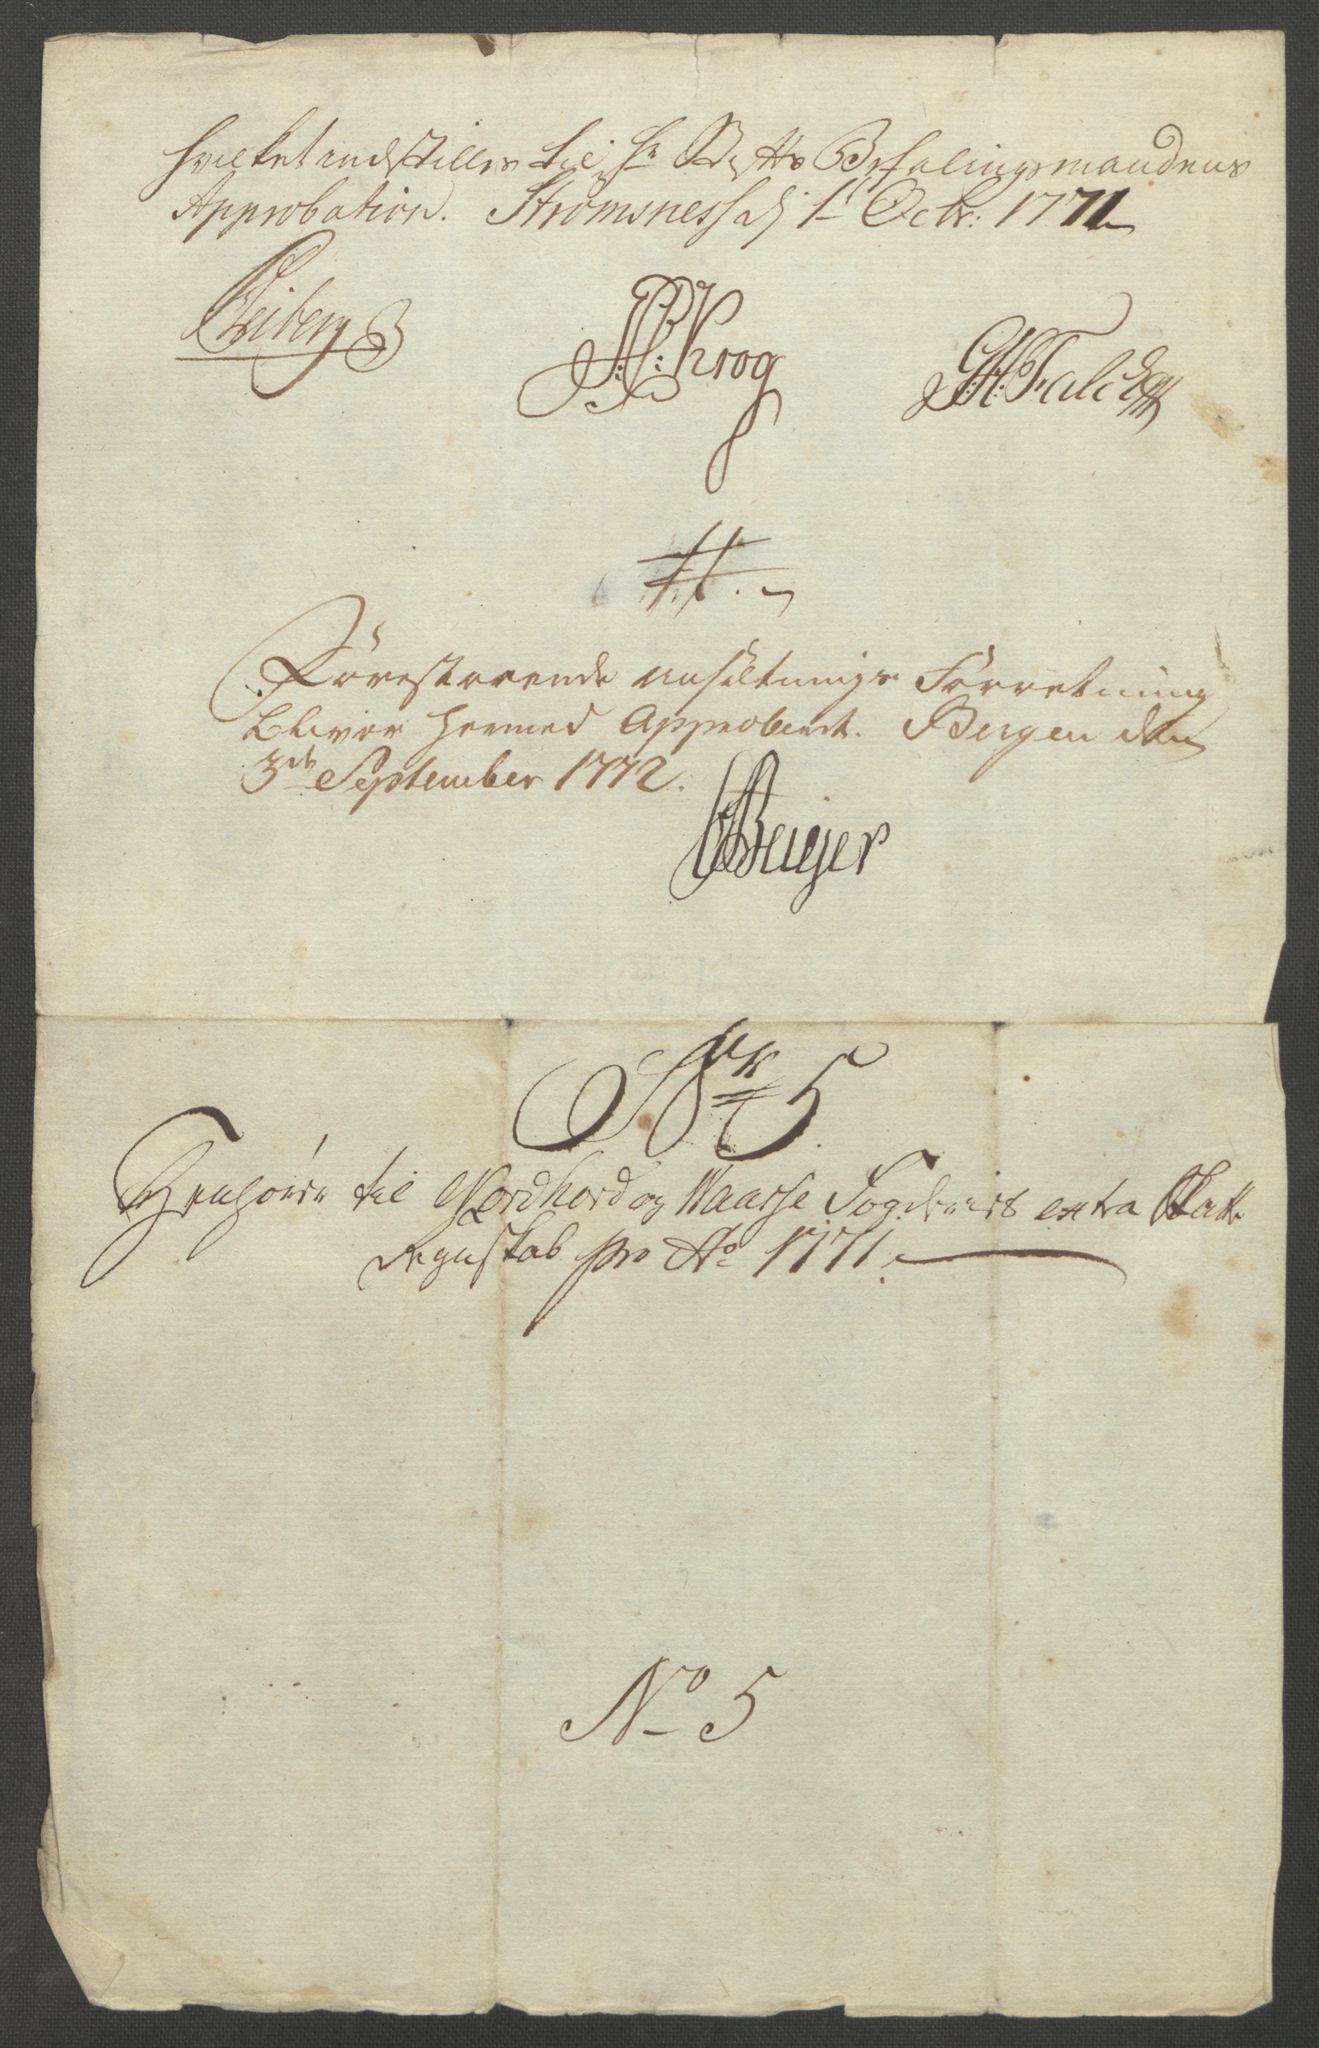 hvilket indstilles til Hr Stifts Befalingsmandens
Approbation. Strømsness d 1t Octr: 1771
Heiberg
A: Krog
G:H: Falck
#.
Førestaaende ansættnings Forretning
bliver hermed Approberet. Bergen den
3de September 1772.
Beyer
Nr 5
Henhører til Nordhord og Waasse Fogderies extra Skatte
regnskab pro Ao 1771.
No 5